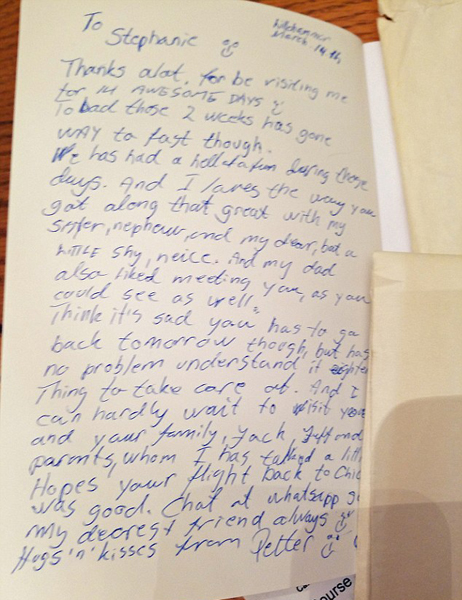 To Stephanie
March 14th,
Thanks alot, for be visiting me
for 14 AWESOME DAYS
To bad those 2 weeks has gone
WAY to fast though.
We has had a hellofafun during these
days. And I loves the way you
got along that great with my
sister, nephew, and my dear, but a
LITTLE shy, neice. And my dad
also liked meeting you, as you
could see as well.
Think it's sad you has to go
back tomorrow though, but has
no problem understand it
Thing to take care of. And I
can hardly wait to visit you
and your family, Jeff and
parents, whom I has talked a
Hopes your flight back to
was good. Chat at whatsapp
my dearest friend always
Hugs 'n' kisses from Petter
ourse